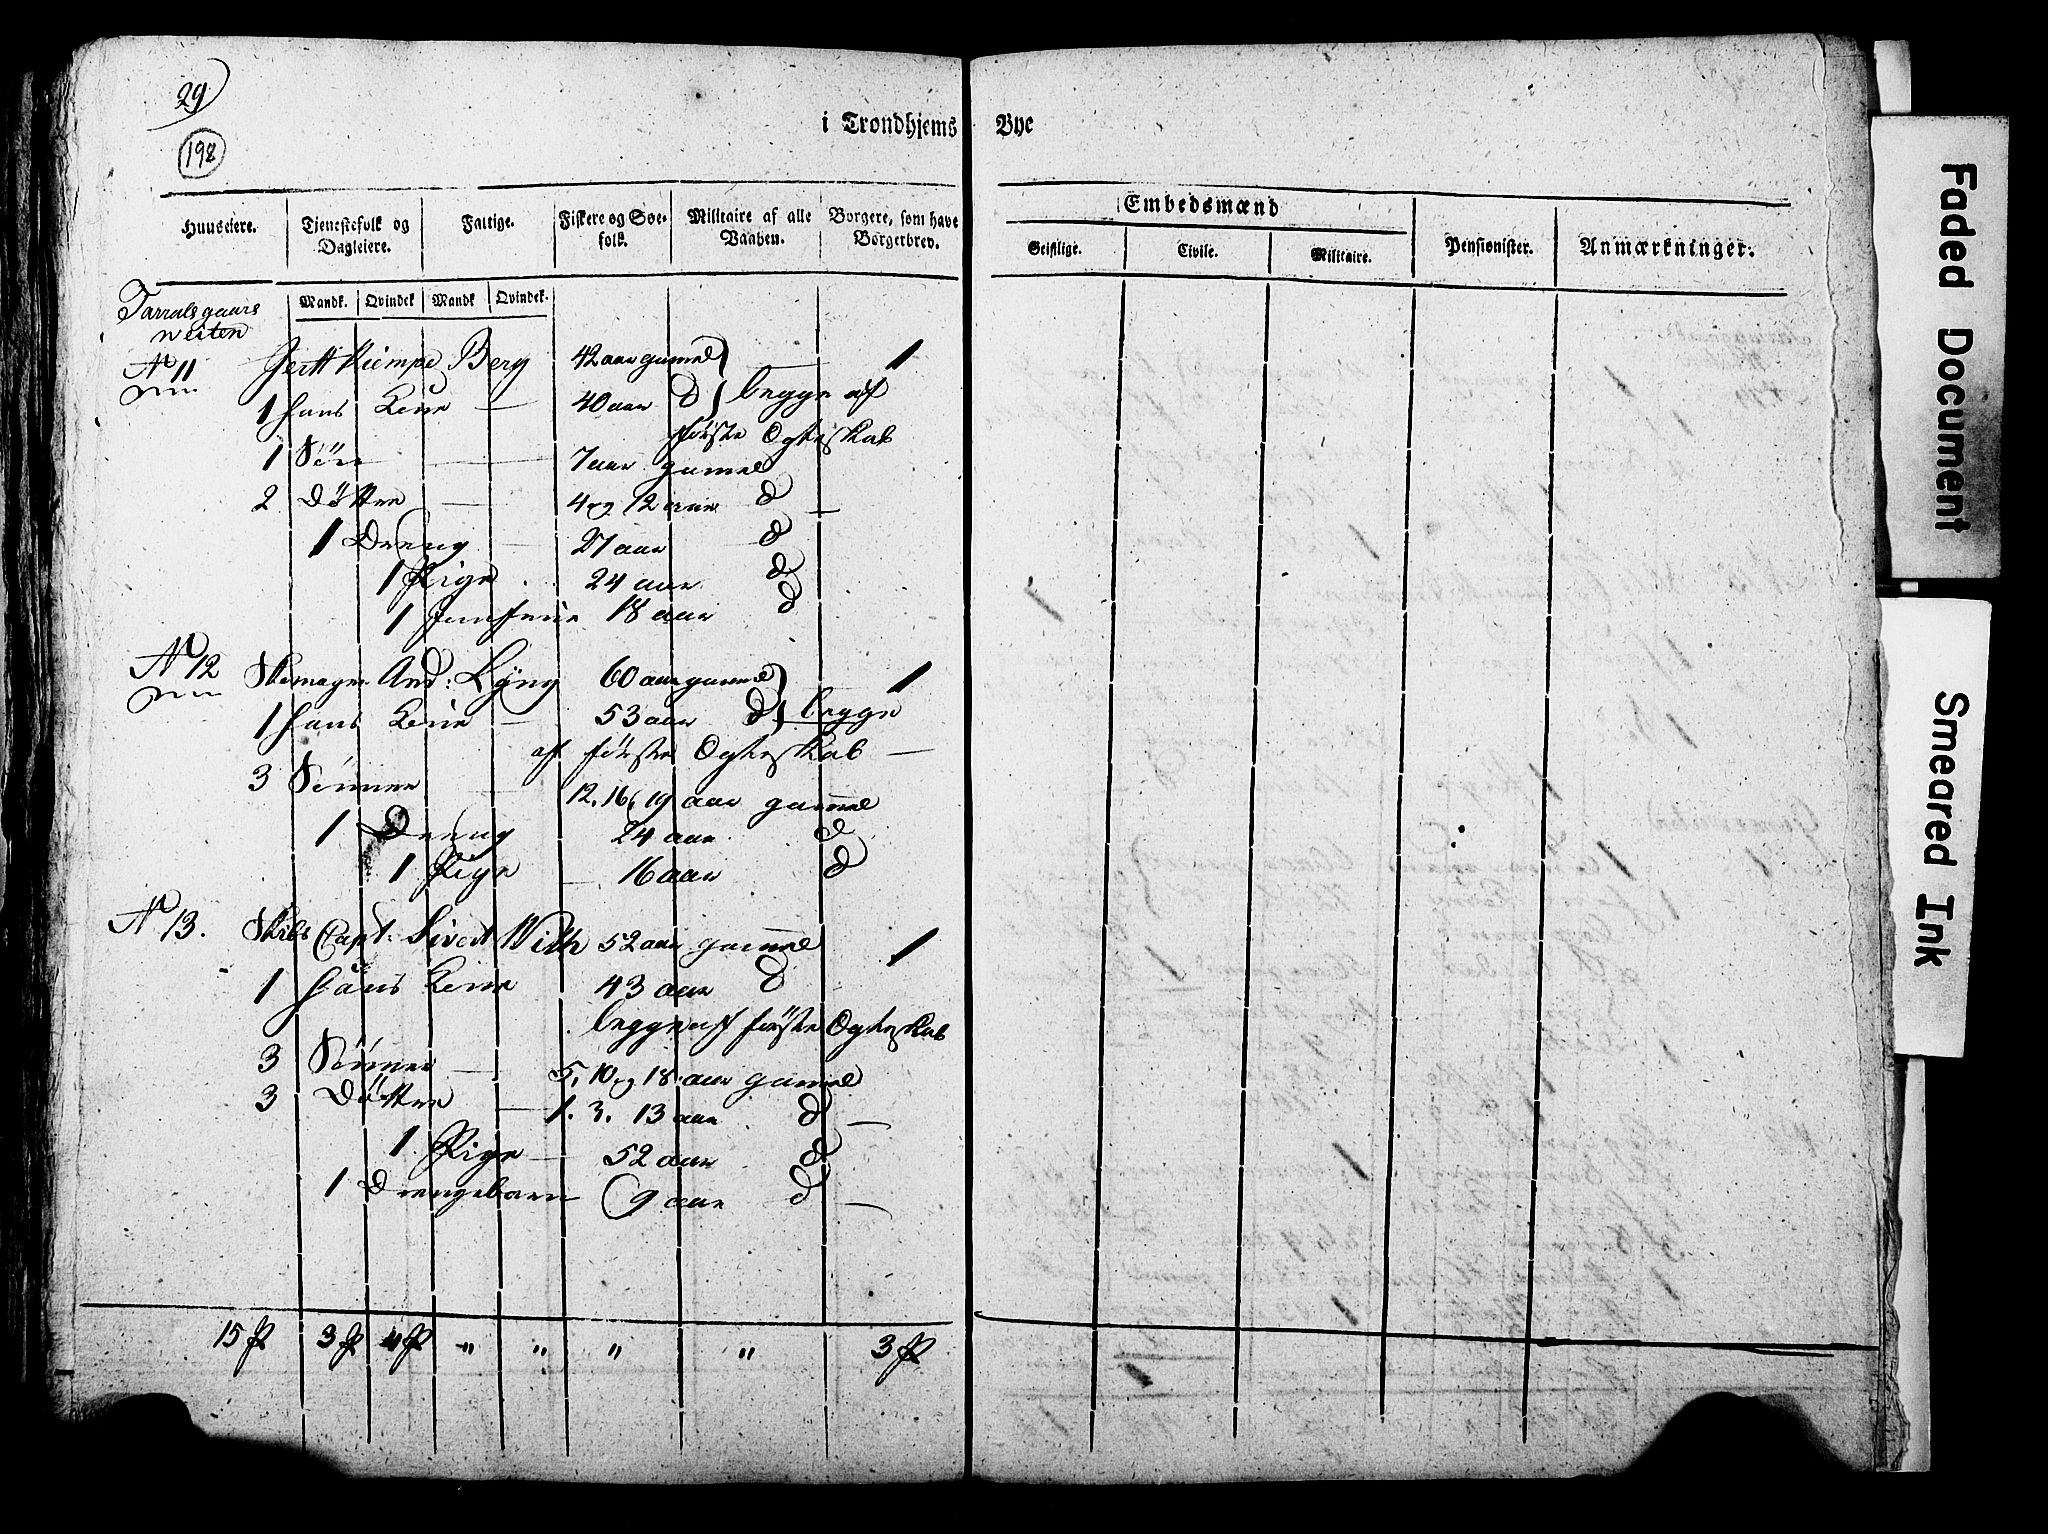 29
198
i Trondhjems Bye
Huuseiere. Tjenestefolk og Dagleiere. Fattige. Fiskere og Søefolk. Militaire af alle Vaaben. Borgere, som have Borgerbrev. Embedsmænd Geistlige. Civile. Militaire. Pensionister. Anmærkninger.
Mandk. Qvindek Mandk Qvindek.
Tarralsgaars
weiten
No 11 Kiempe Berg 42 aar gamel 1
1 hans Kone — 40 aar d begge af
første Ogteskab
1 Sön 7 aar gamel
2 Döttre — 4 og 12 aar d —
1 Dreng 27 aar d
1 Pige 24 aar d
1 Jomfrue 18 aar d
No 12 Skomager And: Lÿng 60 aar gamel 1
1 hans Kone — 53 aar d begge
af første Ogteskab —
3 Sönner — 12. 16. 19 aar gamel
1 Dreng 24 aar d
1 Pige — 16 aar d
No 13. Skibs Capt. Sivert With 52 aar gamel 1
1 hans Kone 43 aar d
begge af første Ogteskab
3 Sönner — 5, 10 og 18 aar gamel
3 Döttre — 1. 3. 13 aar d —
1 Pige — 52 aar d
1 Drengebarn 9 aar d —
15 P 3 P 4 P " " " " 3 P
Faded Document
Smeared Ink